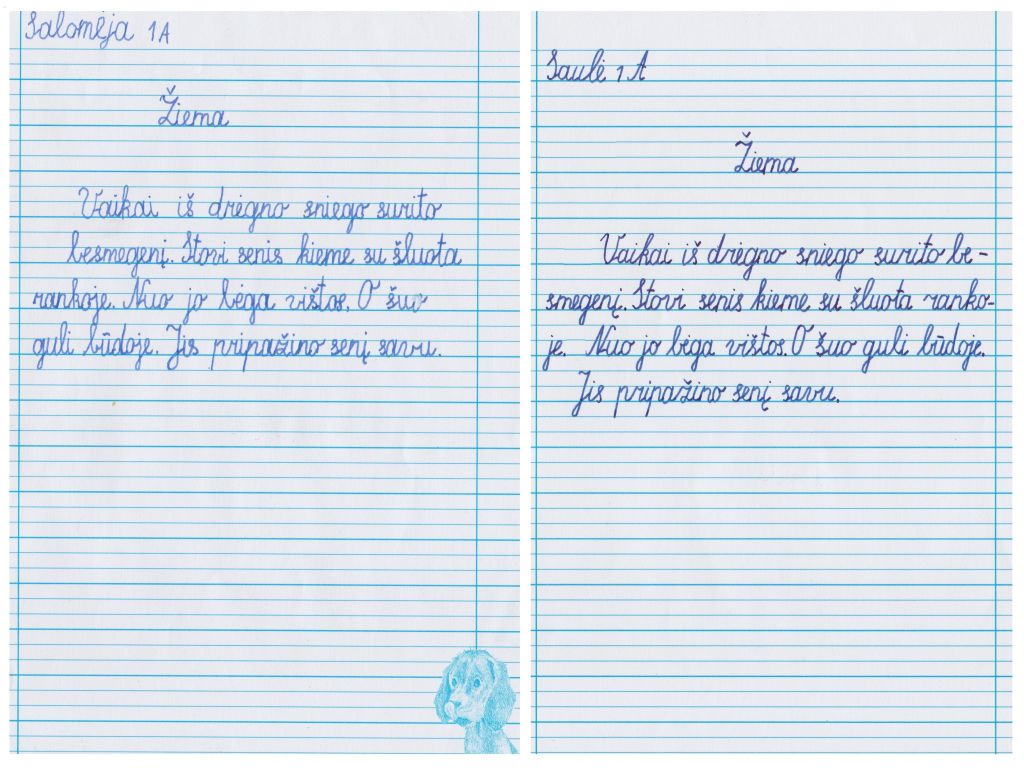 Salomėja 1A
Žiema
Vaikai iš drėgno sniego surito
besmegenį. Stovi senis kieme su šluota
rankoje. Nuo jo bėga vištos. O šuo
guli būdoje. Jis pripažino senį savu.
Saulė 1A
Žiema
Vaikai iš drėgno sniego surito be-
smegenį. Stovi senis kieme su šluota ranko-
je. Nuo jo bėga vištos. O šuo guli būdoje.
Jis pripažino senį savu.